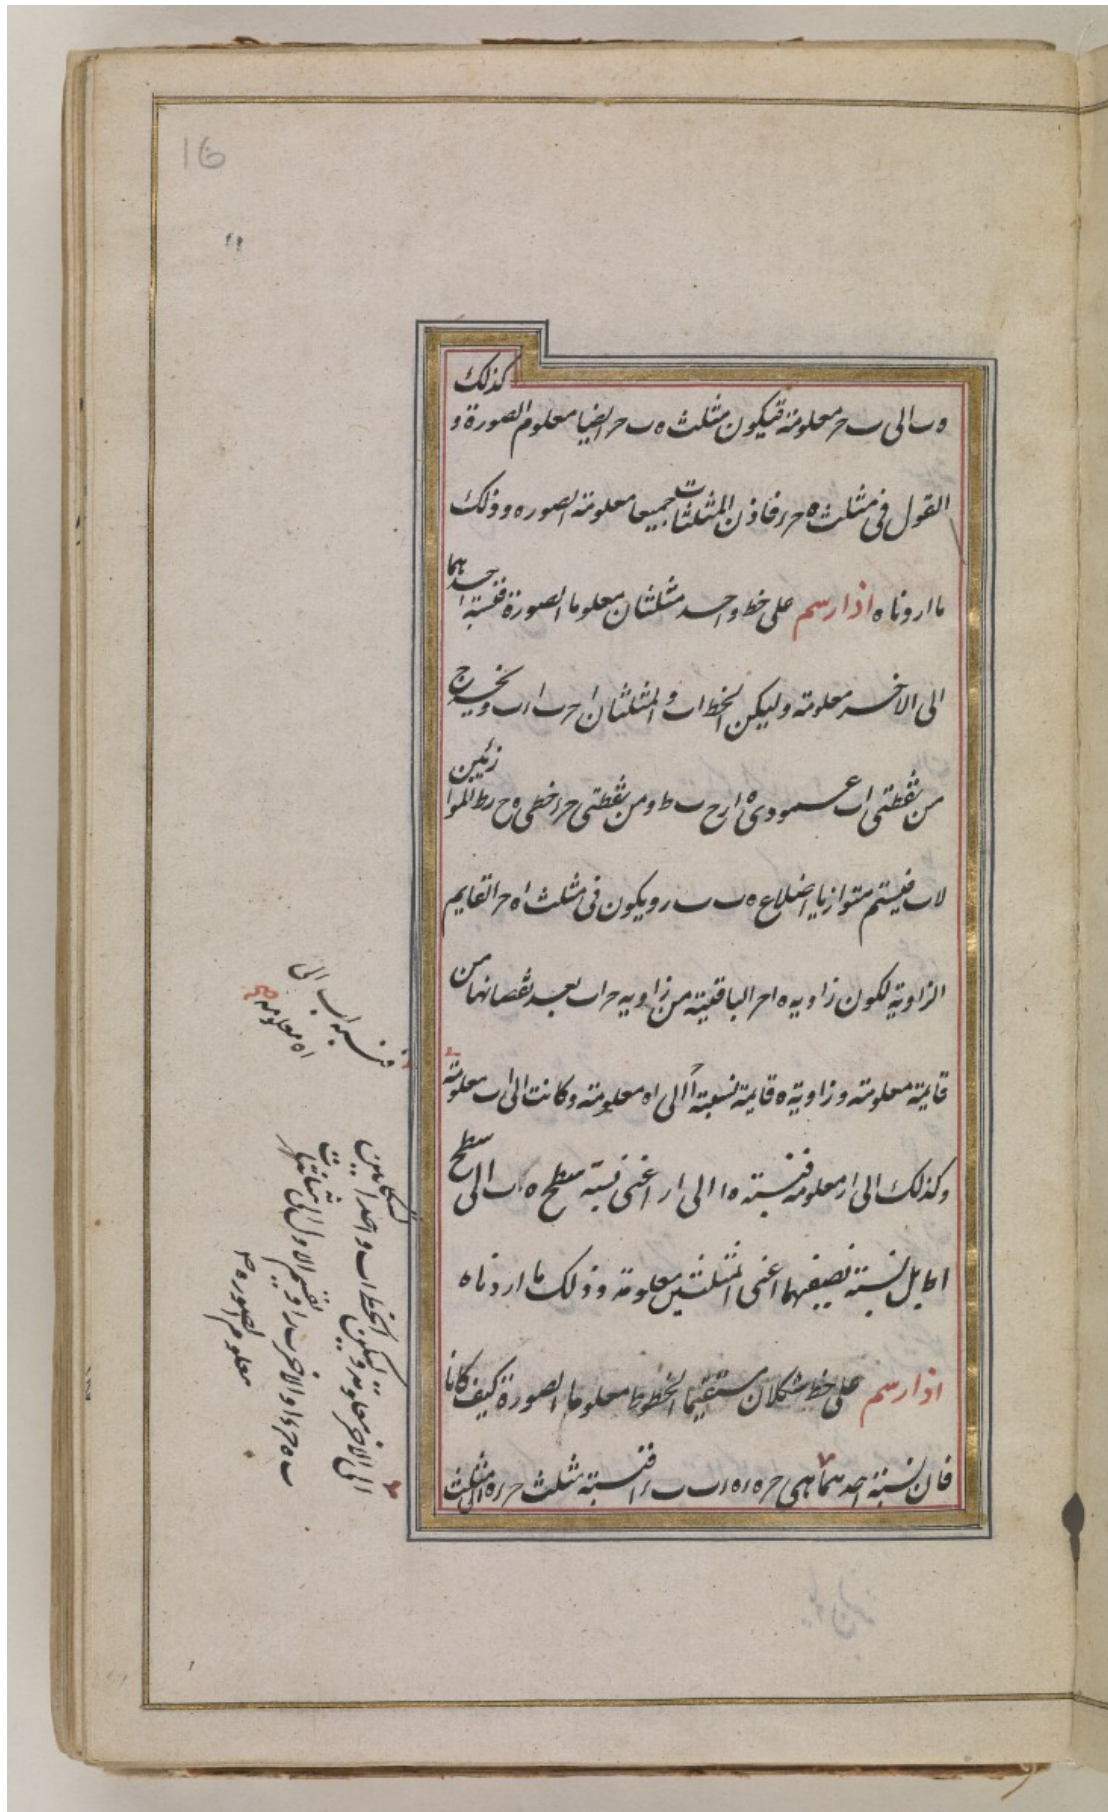 16
١١
كذلك
ه ب الى ب حر معلومة فيكون مثلث ه ب حر ايضا معلوم الصورة و
القول فى مثلث ه حر ر فاذن المثلثات جميعا معلومة الصوره وذلك
ما اردناه اذا رسم على خط واحد مثلثان معلوما الصورة فنسبة احدهما
الى الاخر معلومة وليكن الخط اب والمثلثان ا حر ب ا ر ب ويخرج
من نقطتى اب عمودى ه ا ر ح ب ط ومن نقطتى حر ر خطى ه ح ر ط الموازيين
لاب فيتم متوازيا اضلاع ه ب ب ر ويكون فى مثلث ا ه حر القايم
الزاوية لكون زاويه ه ا حر الباقية من زاويه حر اب بعد نقصانها من
قايمة معلومة وزاوية ه قايمة نسبة ا ح الى اه معلومة وكانت الى اب معلومة
وكذلك الى ار معلومة فنسبة ه ا الى ار اعنى نسبة سطح ه ب الى سطح
ا ط بل نسبة نصيفهما اعنى المثلثين معلومة وذلك ما اردناه
اذا رسم على خط شكلان مستقيما الخطوط معلوما الصورة كيف كانا
فان نسبة احدهما هى حر ه ر ه ر ب ب ر ا فنسبة مثلث حر ر ه الى مثلث
فنسبة اب الى
اه معلومة صح
الى الاخر معلومه وليكن الخط اب واحد
ب ه حر ر ا والاخر ب ر ا و يقسم الاول الى مثلثات
معلوم الصوره صح